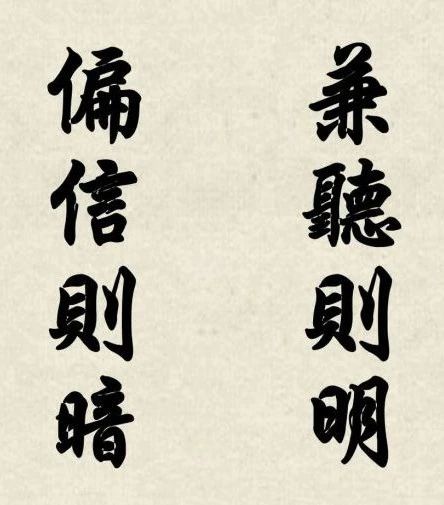 兼聽則明
偏信則暗